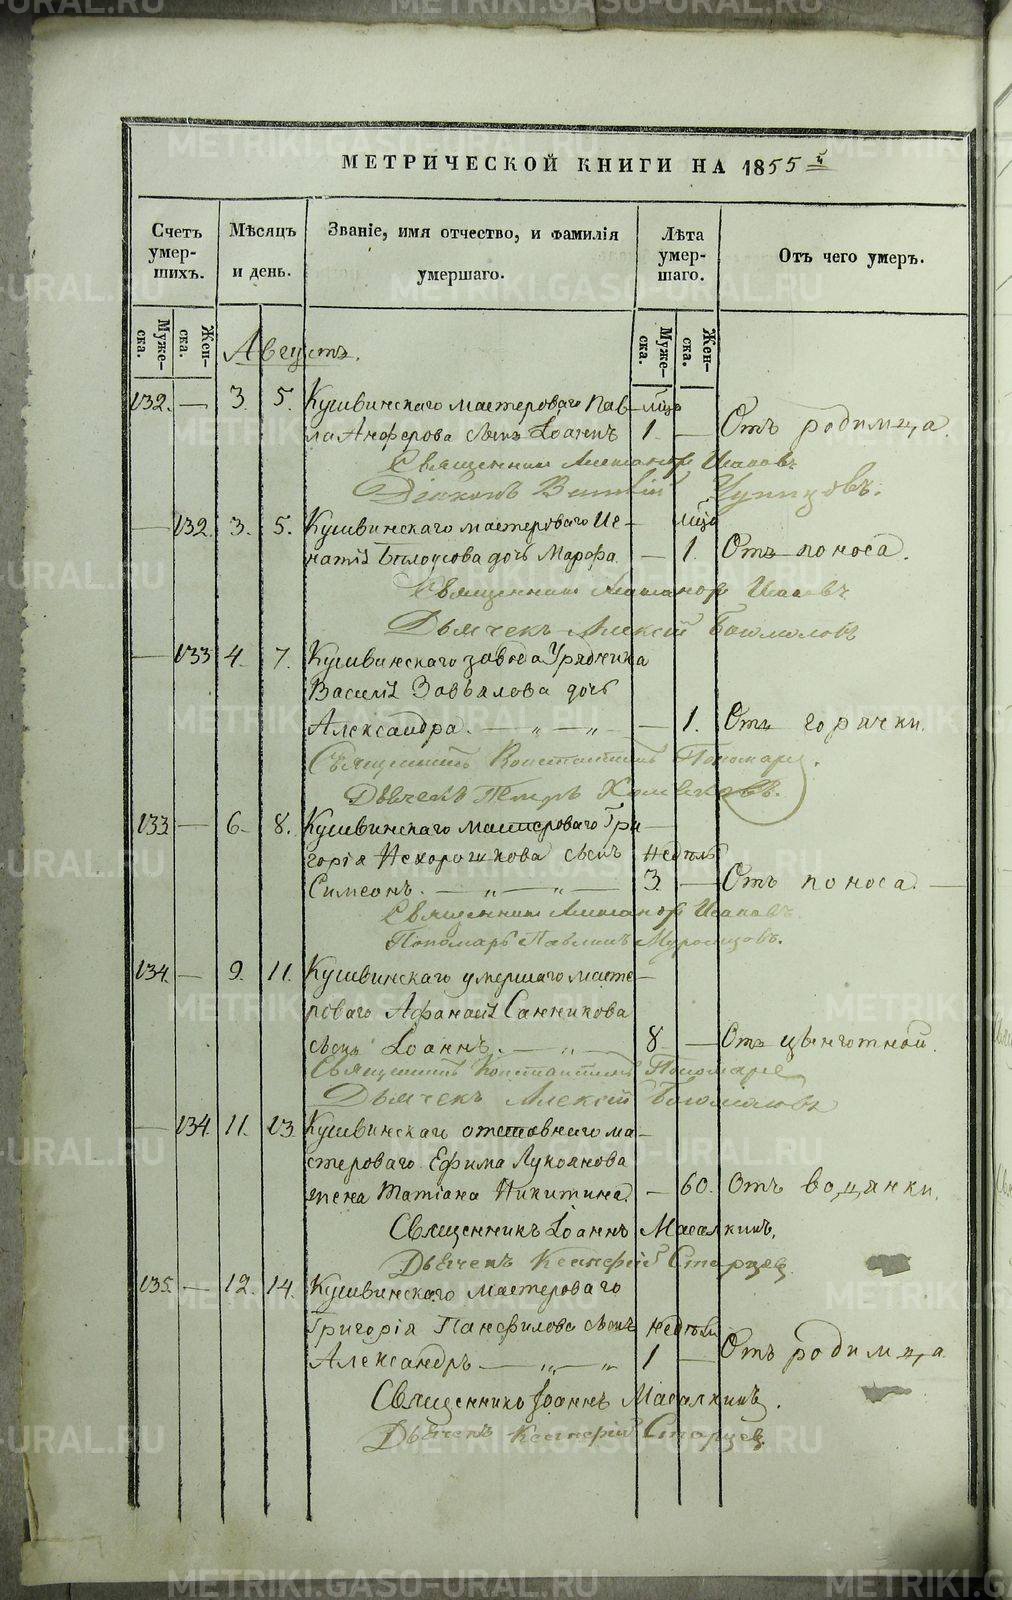 МЕТРИЧЕСКОЙ КНИГИ НА 1855 й
Счетъ умер-шихъ.
Мѣсяцъ и день.
Званіе, имя отчество, и фамилія умершаго.
Лѣта умер-шаго.
Отъ чего умеръ.
Муже-ска.
Жен-ска.
Муже-ска.
Жен-ска.
Августъ.
132. — 3. 5. Кушвинскаго мастероваго Пав- мѣс
ла Анферова сынъ Іоаннъ 1. — Отъ родимца.
Священникъ Александръ Исаковъ
Діаконъ Чупинцовъ.
— 132. 3. 5. Кушвинскаго мастероваго Иг- мѣс
натія Бѣлоусова дочь Марѳа. — 1. Отъ поноса.
Священникъ Александръ Исаковъ
Дьячекъ Алексѣй Богомоловъ
— 133 4. 7. Кушвинскаго завода Урядника
Василія Завьялова дочь
Александра. — „ — „ — 1. Отъ горячки.
Священникъ Константинъ Пономаре
Дьячекъ Петръ
133 — 6. 8. Кушвинскаго мастероваго Гри-
горія Нехорошкова сынъ недѣль
Симеонъ. — „ — „ — 3 — Отъ поноса. —
Священникъ Александръ Исаковъ.
Пономарь Павлинъ Муромцовъ.
134. — 9. 11. Кушвинскаго умершаго масте-
роваго Афанасія Санникова
сынъ Іоаннъ. — „ — 8 — Отъ цынготной.
Священникъ Константинъ Пономаре
Дьячекъ Алексѣй Богомоловъ
— 134. 11. 13. Кушвинскаго отставнаго ма-
стероваго Ефима Лукоянова
жена Татіана Никитина. — 60. Отъ водянки.
Священникъ Іоаннъ Масалкинъ.
Дьячекъ Ксенофій Старцев
135. — 12. 14. Кушвинскаго мастероваго
Григорія Панфилова сынъ недѣли
Александръ — „ — „ 1 — Отъ родимца.
Священникъ Іоаннъ Масалкинъ.
Дьячекъ Ксенофій Старцев
METRIKI.GASO-URAL.RU